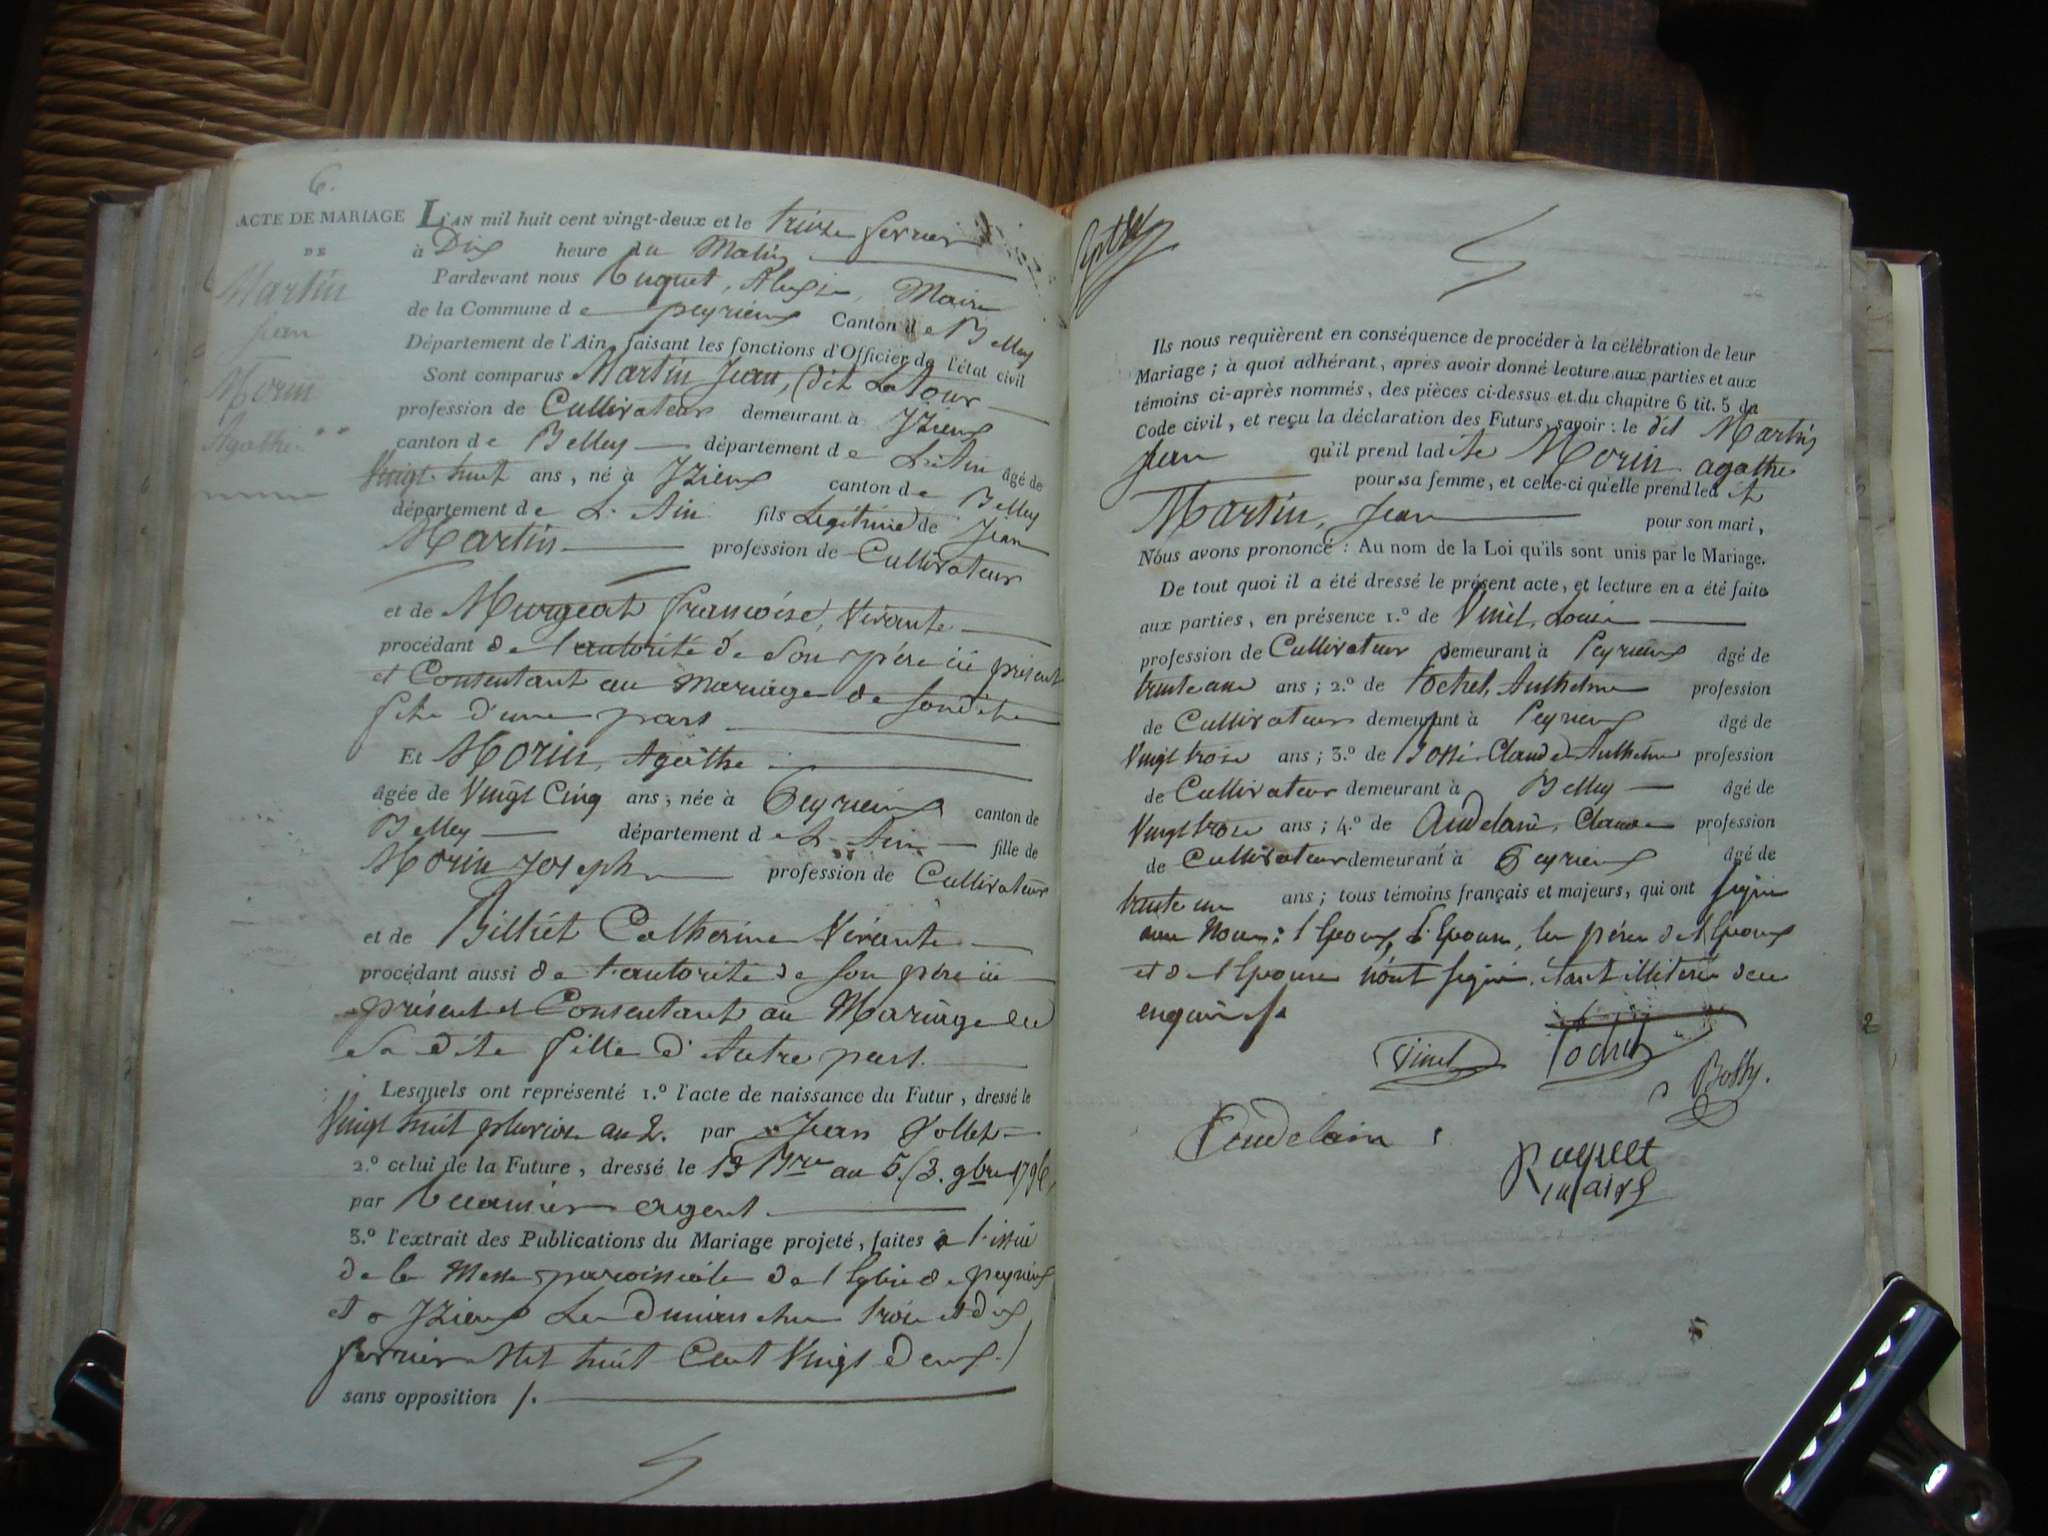 6.
ACTE DE MARIAGE
DE
Martin
Jean
Morin
Agathe
L'AN mil huit cent vingt-deux et le treize fevrier
à Dix heure du Matin
Pardevant nous Alexis, Maire
de la Commune de peyrieux Canton de Belley
Département de l'Ain, faisant les fonctions d'Officier de l'état civil
Sont comparus Martin Jean, (dit Latour
profession de Cultivateur demeurant à Izieux
canton de Belley département de L'Ain âgé de
Vingt huit ans, né à Izieux canton de Belley
département de L'Ain fils Legitime de Jean
Martin profession de Cultivateur
et de francoise, Vivante
procédant de l'autorité de Son père ici présent
et Consentant au mariage de sondit
fils d'une part
Et Morin, Agathe
âgée de Vingt Cinq ans, née à Peyrieux canton de
Belley département de L'Ain fille de
Morin Joseph profession de Cultivateur
et de Billiet Catherine Vivante
procédant aussi de l'autorité de son père ici
présent et Consentant au Mariage de
Sa dite fille d'Autre part.
Lesquels ont représenté 1.º l'acte de naissance du Futur, dressé le
Vingt huit pluviose an 2. par Jean
2.º celui de la Future, dressé le 13 Bre an 5 (3. 9bre 1796)
par agent
3.º l'extrait des Publications du Mariage projeté, faites à l'issue
de la Messe paroissiale de l'Eglise de peyrieux
et a Izieux Les dimanches trois et dix
fevrier Mil huit Cent Vingt deux.)
sans opposition /.
Ils nous requièrent en conséquence de procéder à la célébration de leur
Mariage; à quoi adhérant, après avoir donné lecture aux parties et aux
témoins ci-après nommés, des pièces ci-dessus et du chapitre 6 tit. 5 du
Code civil, et reçu la déclaration des Futurs, savoir: le dit Martin
Jean qu'il prend ladite Morin agathe
pour sa femme, et celle-ci qu'elle prend ledit
Martin, Jean pour son mari,
Nous avons prononcé: Au nom de la Loi qu'ils sont unis par le Mariage.
De tout quoi il a été dressé le présent acte, et lecture en a été faite
aux parties, en présence 1.º de Vinet, Louis
profession de Cultivateur demeurant à Peyrieux âgé de
ans; 2.º de Tochet, Anthelme profession
de Cultivateur demeurant à Peyrieux âgé de
Vingt trois ans; 3.º de Bossi, Claude Anthelme profession
de Cultivateur demeurant à Belley âgé de
Vingt trois ans; 4.º de Claude profession
de Cultivateur demeurant à Peyrieux âgé de
trente un ans; tous témoins français et majeurs, qui ont signé
avec Nous: l'Epoux, l'Epouse, les pères de l'Epoux
et de l'Epouse n'ont signé, étant illiterés de ce
enquis /.
Vinet
Tochet
Bossy.
2
maire